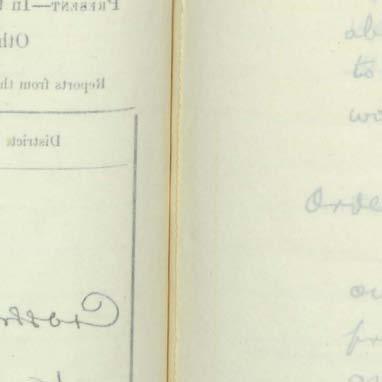 PRESENT—In t
Oth
Reports from th
Districts
Cross
ab
to
wo
Orde
ou
fr